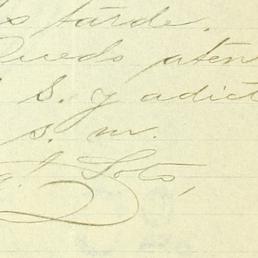 tarde.
Quedo aten
s. y adict
s. m.
Soto,